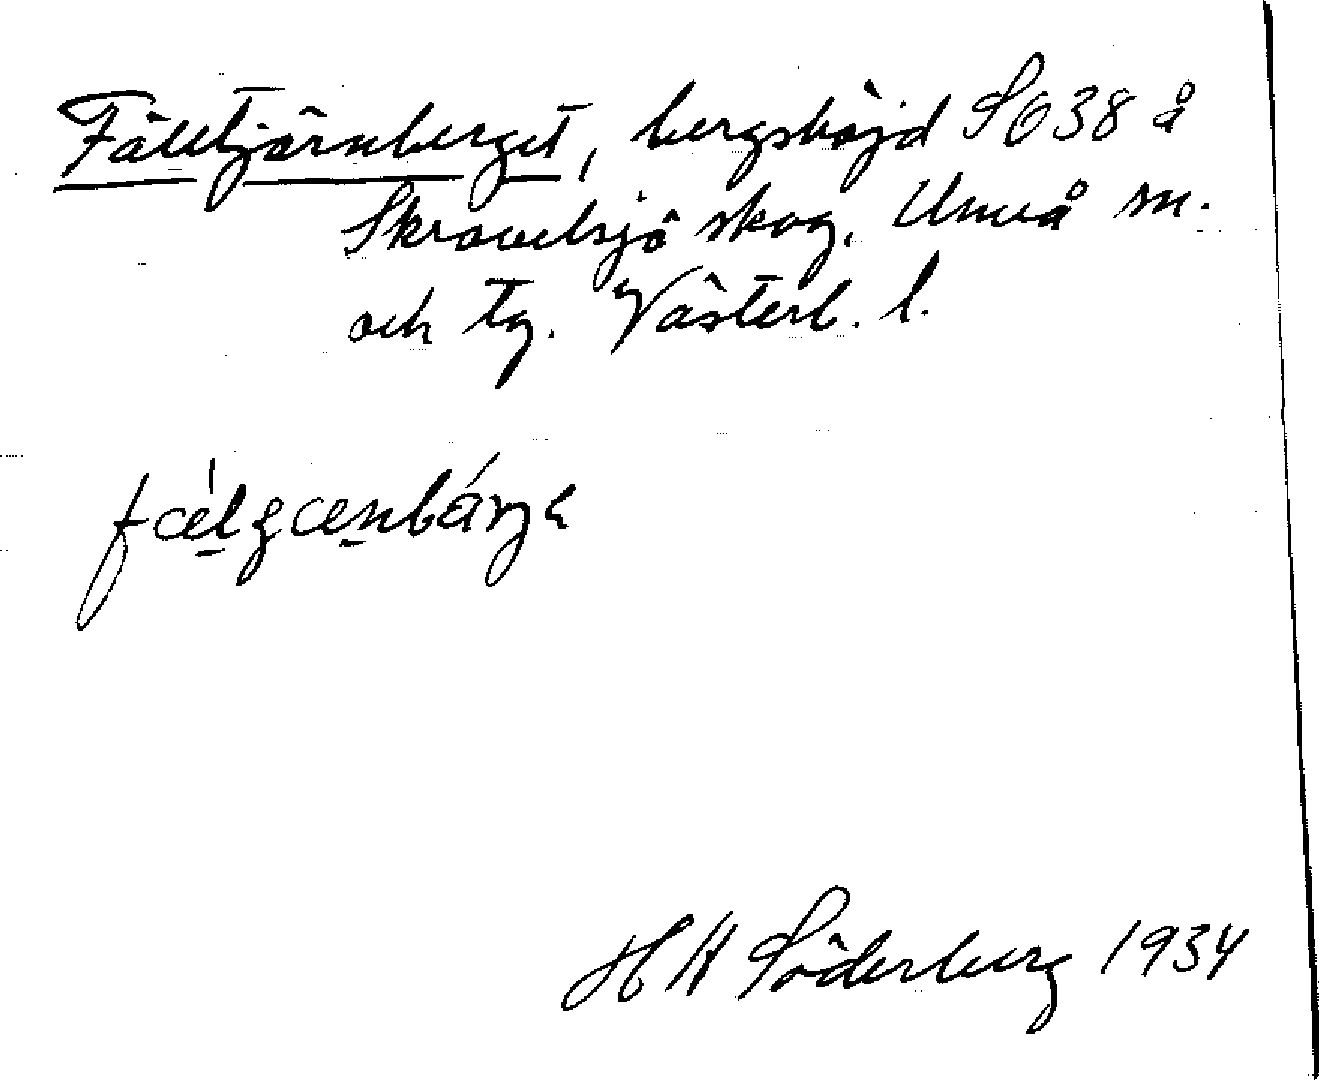 Fäletjärnberget, bergshöjd SO38 å
Skravelsjö skog, Umeå sn.
och tg. Västerb. l.
H W Söderberg 1934